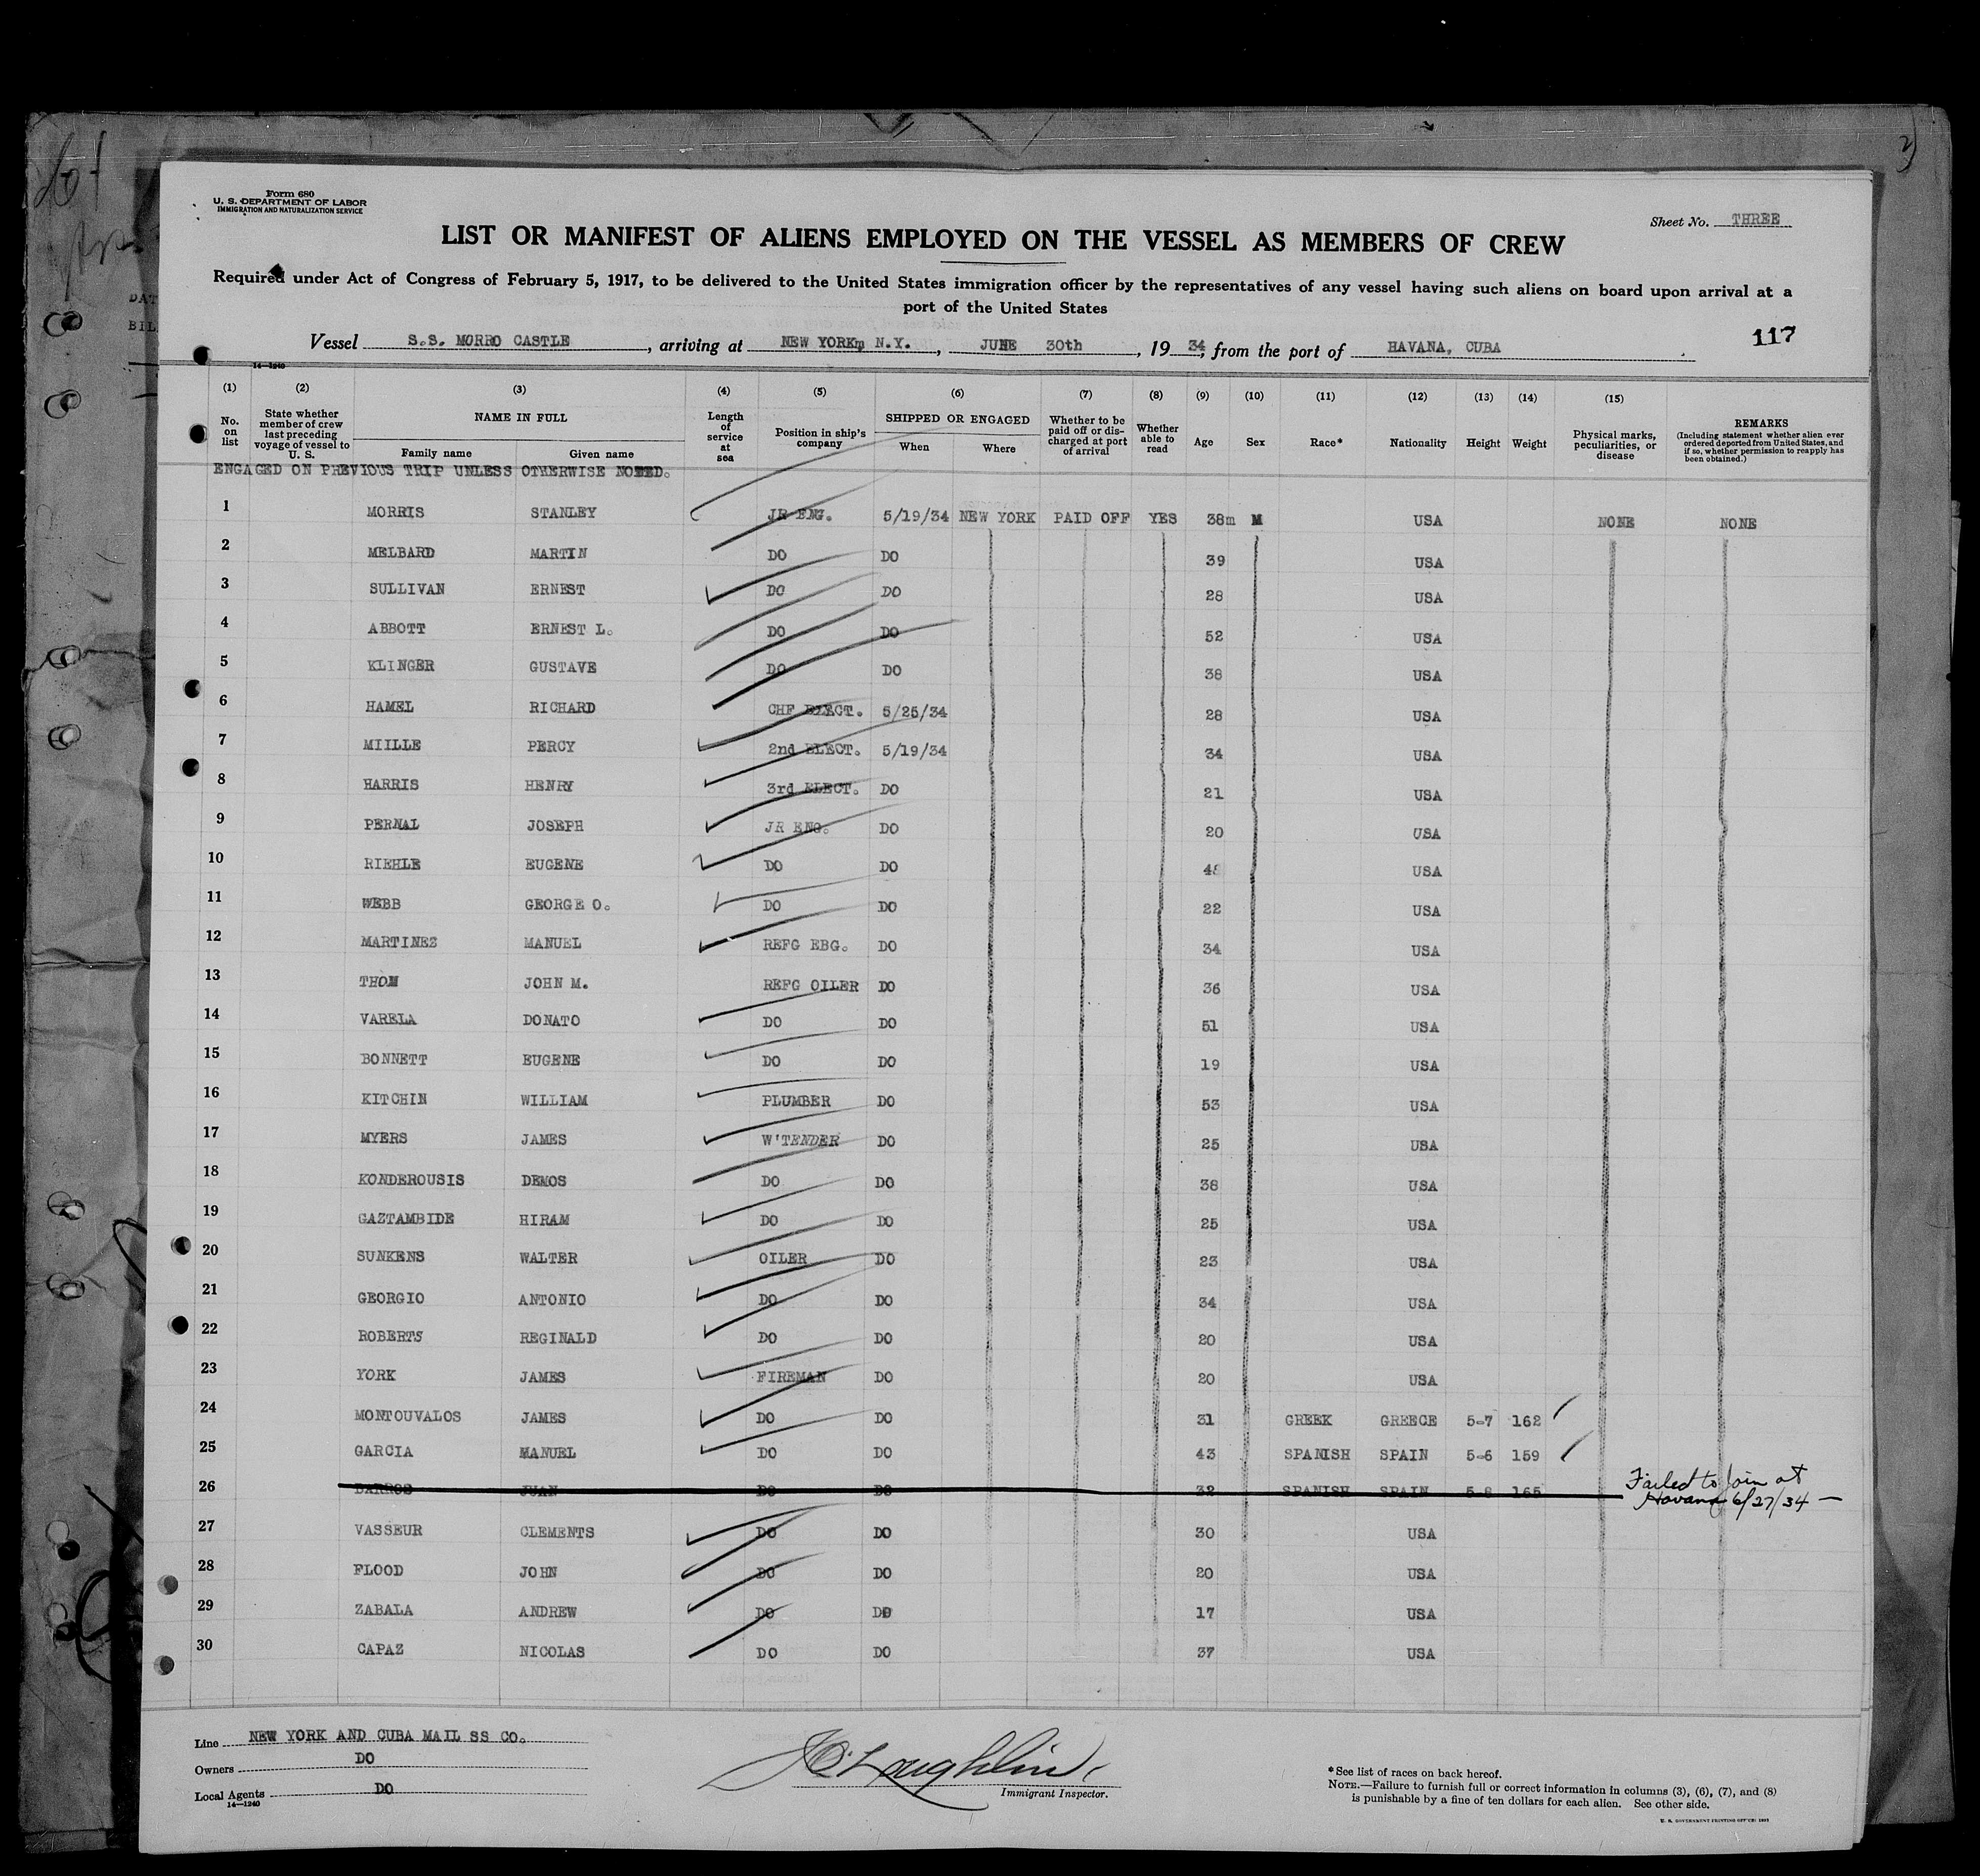 Form 680
U. S. DEPARTMENT OF LABOR
IMMIGRATION AND NATURALIZATION SERVICE
Sheet No. THREE
LIST OR MANIFEST OF ALIENS EMPLOYED ON THE VESSEL AS MEMBERS OF CREW
Required under Act of Congress of February 5, 1917, to be delivered to the United States immigration officer by the representatives of any vessel having such aliens on board upon arrival at a
port of the United States
117
Vessel S.S. MORRO CASTLE, arriving at NEW YORKm N.Y., JUNE 30th, 19 34, from the port of HAVANA, CUBA
14—1240
(1) (2) (3) (4) (5) (6) (7) (8) (9) (10) (11) (12) (13) (14) (15)
No. on list State whether member of crew last preceding voyage of vessel to U. S. NAME IN FULL Family name Given name Length of service at sea Position in ship's company SHIPPED OR ENGAGED When Where Whether to be paid off or discharged at port of arrival Whether able to read Age Sex Race* Nationality Height Weight Physical marks, peculiarities, or disease REMARKS (Including statement whether alien ever ordered deported from United States, and if so, whether permission to reapply has been obtained.)
ENGAGED ON PREVIOUS TRIP UNLESS OTHERWISE NOTED.
1 MORRIS STANLEY JR ENG. 5/19/34 NEW YORK PAID OFF YES 38m M USA NONE NONE
2 MELBARD MARTIN DO DO 39 USA
3 SULLIVAN ERNEST DO DO 28 USA
4 ABBOTT ERNEST L. DO DO 52 USA
5 KLINGER GUSTAVE DO DO 38 USA
6 HAMEL RICHARD CHF ELECT. 5/25/34 28 USA
7 MIILLE PERCY 2nd ELECT. 5/19/34 34 USA
8 HARRIS HENRY 3rd ELECT. DO 21 USA
9 PERNAL JOSEPH JR ENG. DO 20 USA
10 RIEHLE EUGENE DO DO USA
11 WEBB GEORGE O. DO DO 22 USA
12 MARTINEZ MANUEL REFG EBG. DO 34 USA
13 THOM JOHN M. REFG OILER DO 36 USA
14 VARELA DONATO DO DO 51 USA
15 BONNETT EUGENE DO DO 19 USA
16 KITCHIN WILLIAM PLUMBER DO 53 USA
17 MYERS JAMES W'TENDER DO 25 USA
18 KONDEROUSIS DEMOS DO DO 38 USA
19 GAZTAMBIDE HIRAM DO DO 25 USA
20 SUNKENS WALTER OILER DO 23 USA
21 GEORGIO ANTONIO DO DO 34 USA
22 ROBERTS REGINALD DO DO 20 USA
23 YORK JAMES FIREMAN DO 20 USA
24 MONTOUVALOS JAMES DO DO 31 GREEK GREECE 5-7 162
25 GARCIA MANUEL DO DO 43 SPANISH SPAIN 5-6 159
26 JUAN DO DO 32 SPANISH SPAIN 5-8 165 Failed to Join at
Havana 6/27/34 —
27 VASSEUR CLEMENTS DO DO 30 USA
28 FLOOD JOHN DO DO 20 USA
29 ZABALA ANDREW DO DO 17 USA
30 CAPAZ NICOLAS DO DO 37 USA
Line NEW YORK AND CUBA MAIL SS CO.
Owners DO
Local Agents DO
14—1240
Immigrant Inspector.
*See list of races on back hereof.
NOTE.—Failure to furnish full or correct information in columns (3), (6), (7), and (8)
is punishable by a fine of ten dollars for each alien. See other side.